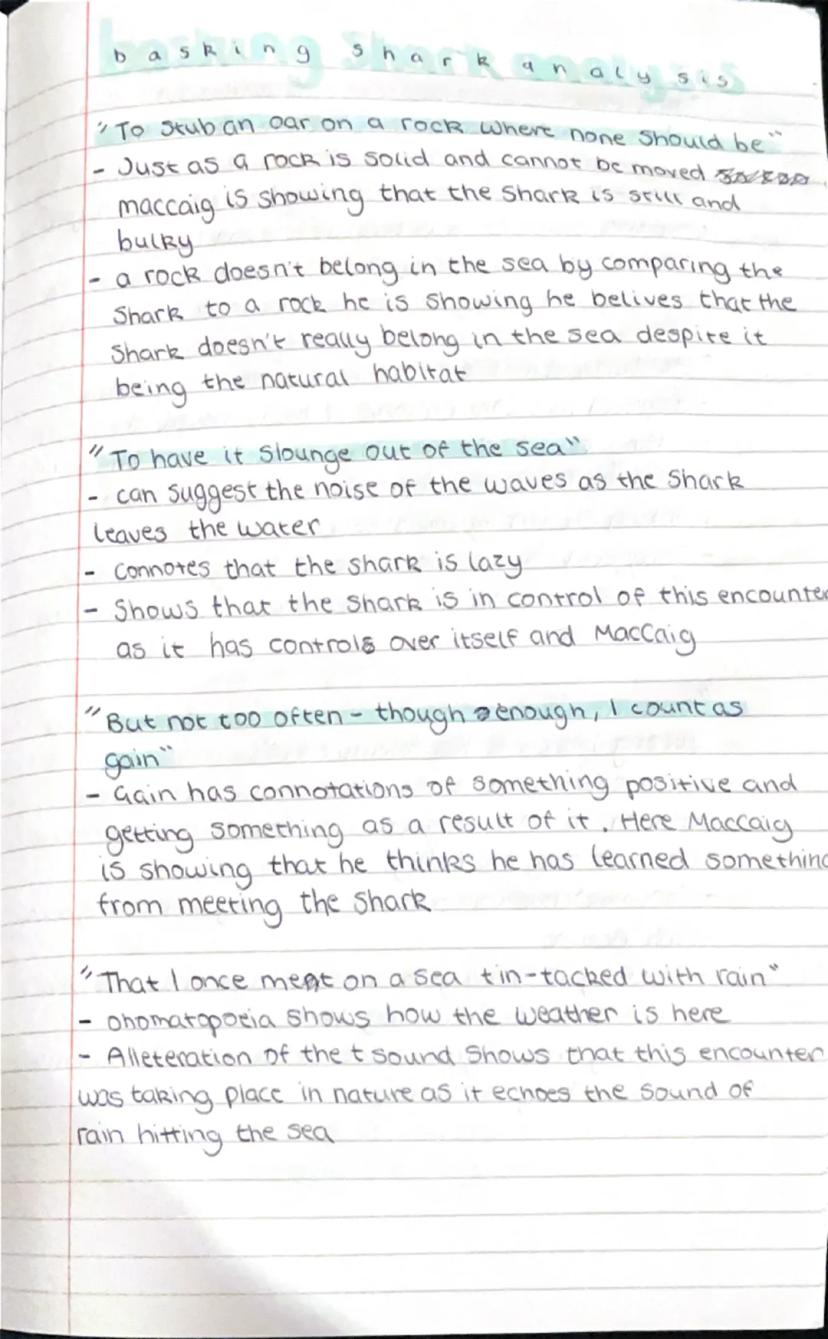 basking shark analysis
"To stub an oar on a rock where none should be"
- Just as a rock is solid and cannot be moved
maccaig is showing that the shark is still and
bulky
- a rock doesn't belong in the sea by comparing the
shark to a rock he is showing he belives that the
shark doesn't really belong in the sea despite it
being the natural habitat
"To have it slounge out of the sea"
- can suggest the noise of the waves as the shark
leaves the water
- connotes that the shark is lazy
- Shows that the shark is in control of this encounter
as it has controls over itself and MacCaig
"But not too often - though enough, I count as
gain"
- Gain has connotations of something positive and
getting something as a result of it. Here MacCaig
is showing that he thinks he has learned something
from meeting the shark
"That I once met on a sea tin-tacked with rain"
- onomatopoeia shows how the weather is here
- Alleteration of the t sound shows that this encounter
was taking place in nature as it echoes the sound of
rain hitting the sea